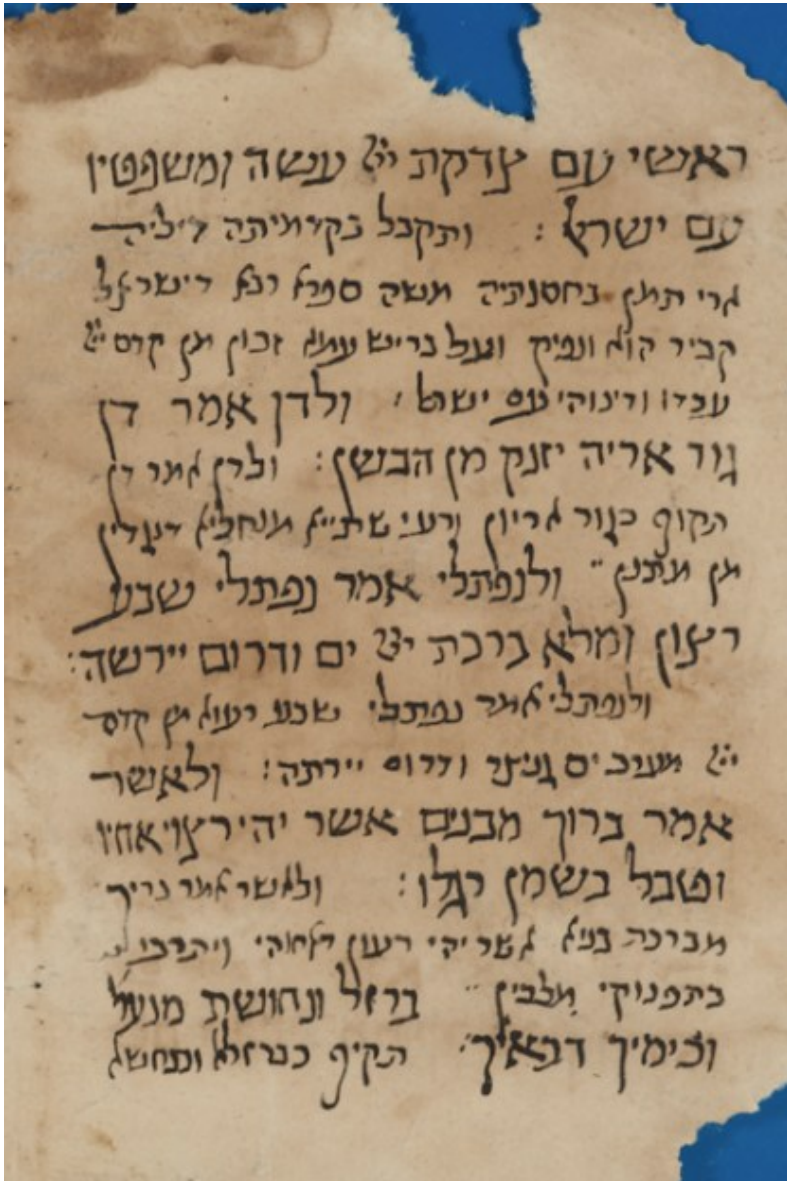 ראשי עם צדקת ייי עשה ומשפטיו
עם ישראל : ותקבל בקדמיתה דיליה
ארי תמן באחסנתיה משה ספרא רבא דישראל
קביר הוא ונפיק ועל בריש עמא זכוון מן קדם ייי
עבד ודינוהי עם ישראל : ולדן אמר דן
גור אריה יזנק מן הבשן : ולדן אמר דן
תקוף כגור אריון ורעי שתיא מנחליא דנגדין
מן מתנן ולנפתלי אמר נפתלי שבע
רצון ומלא ברכת ייי ים ודרום יירשה :
ולנפתלי אמר נפתלי שבע רעוא מן קדם
ייי מערב ים גניסר ודרום יירתה : ולאשר
אמר ברוך מבנים אשר יהי רצוי אחיו
וטבל בשמן רגלו : ולאשר אמר בריך
מברכת בניא אשר יהי רעון דאחוהי ויתרבי
בתפנוקי מלכין ברזל ונחושת מנעליך
וכימיך דבאיך : תקיף כברזלא וכנחשא